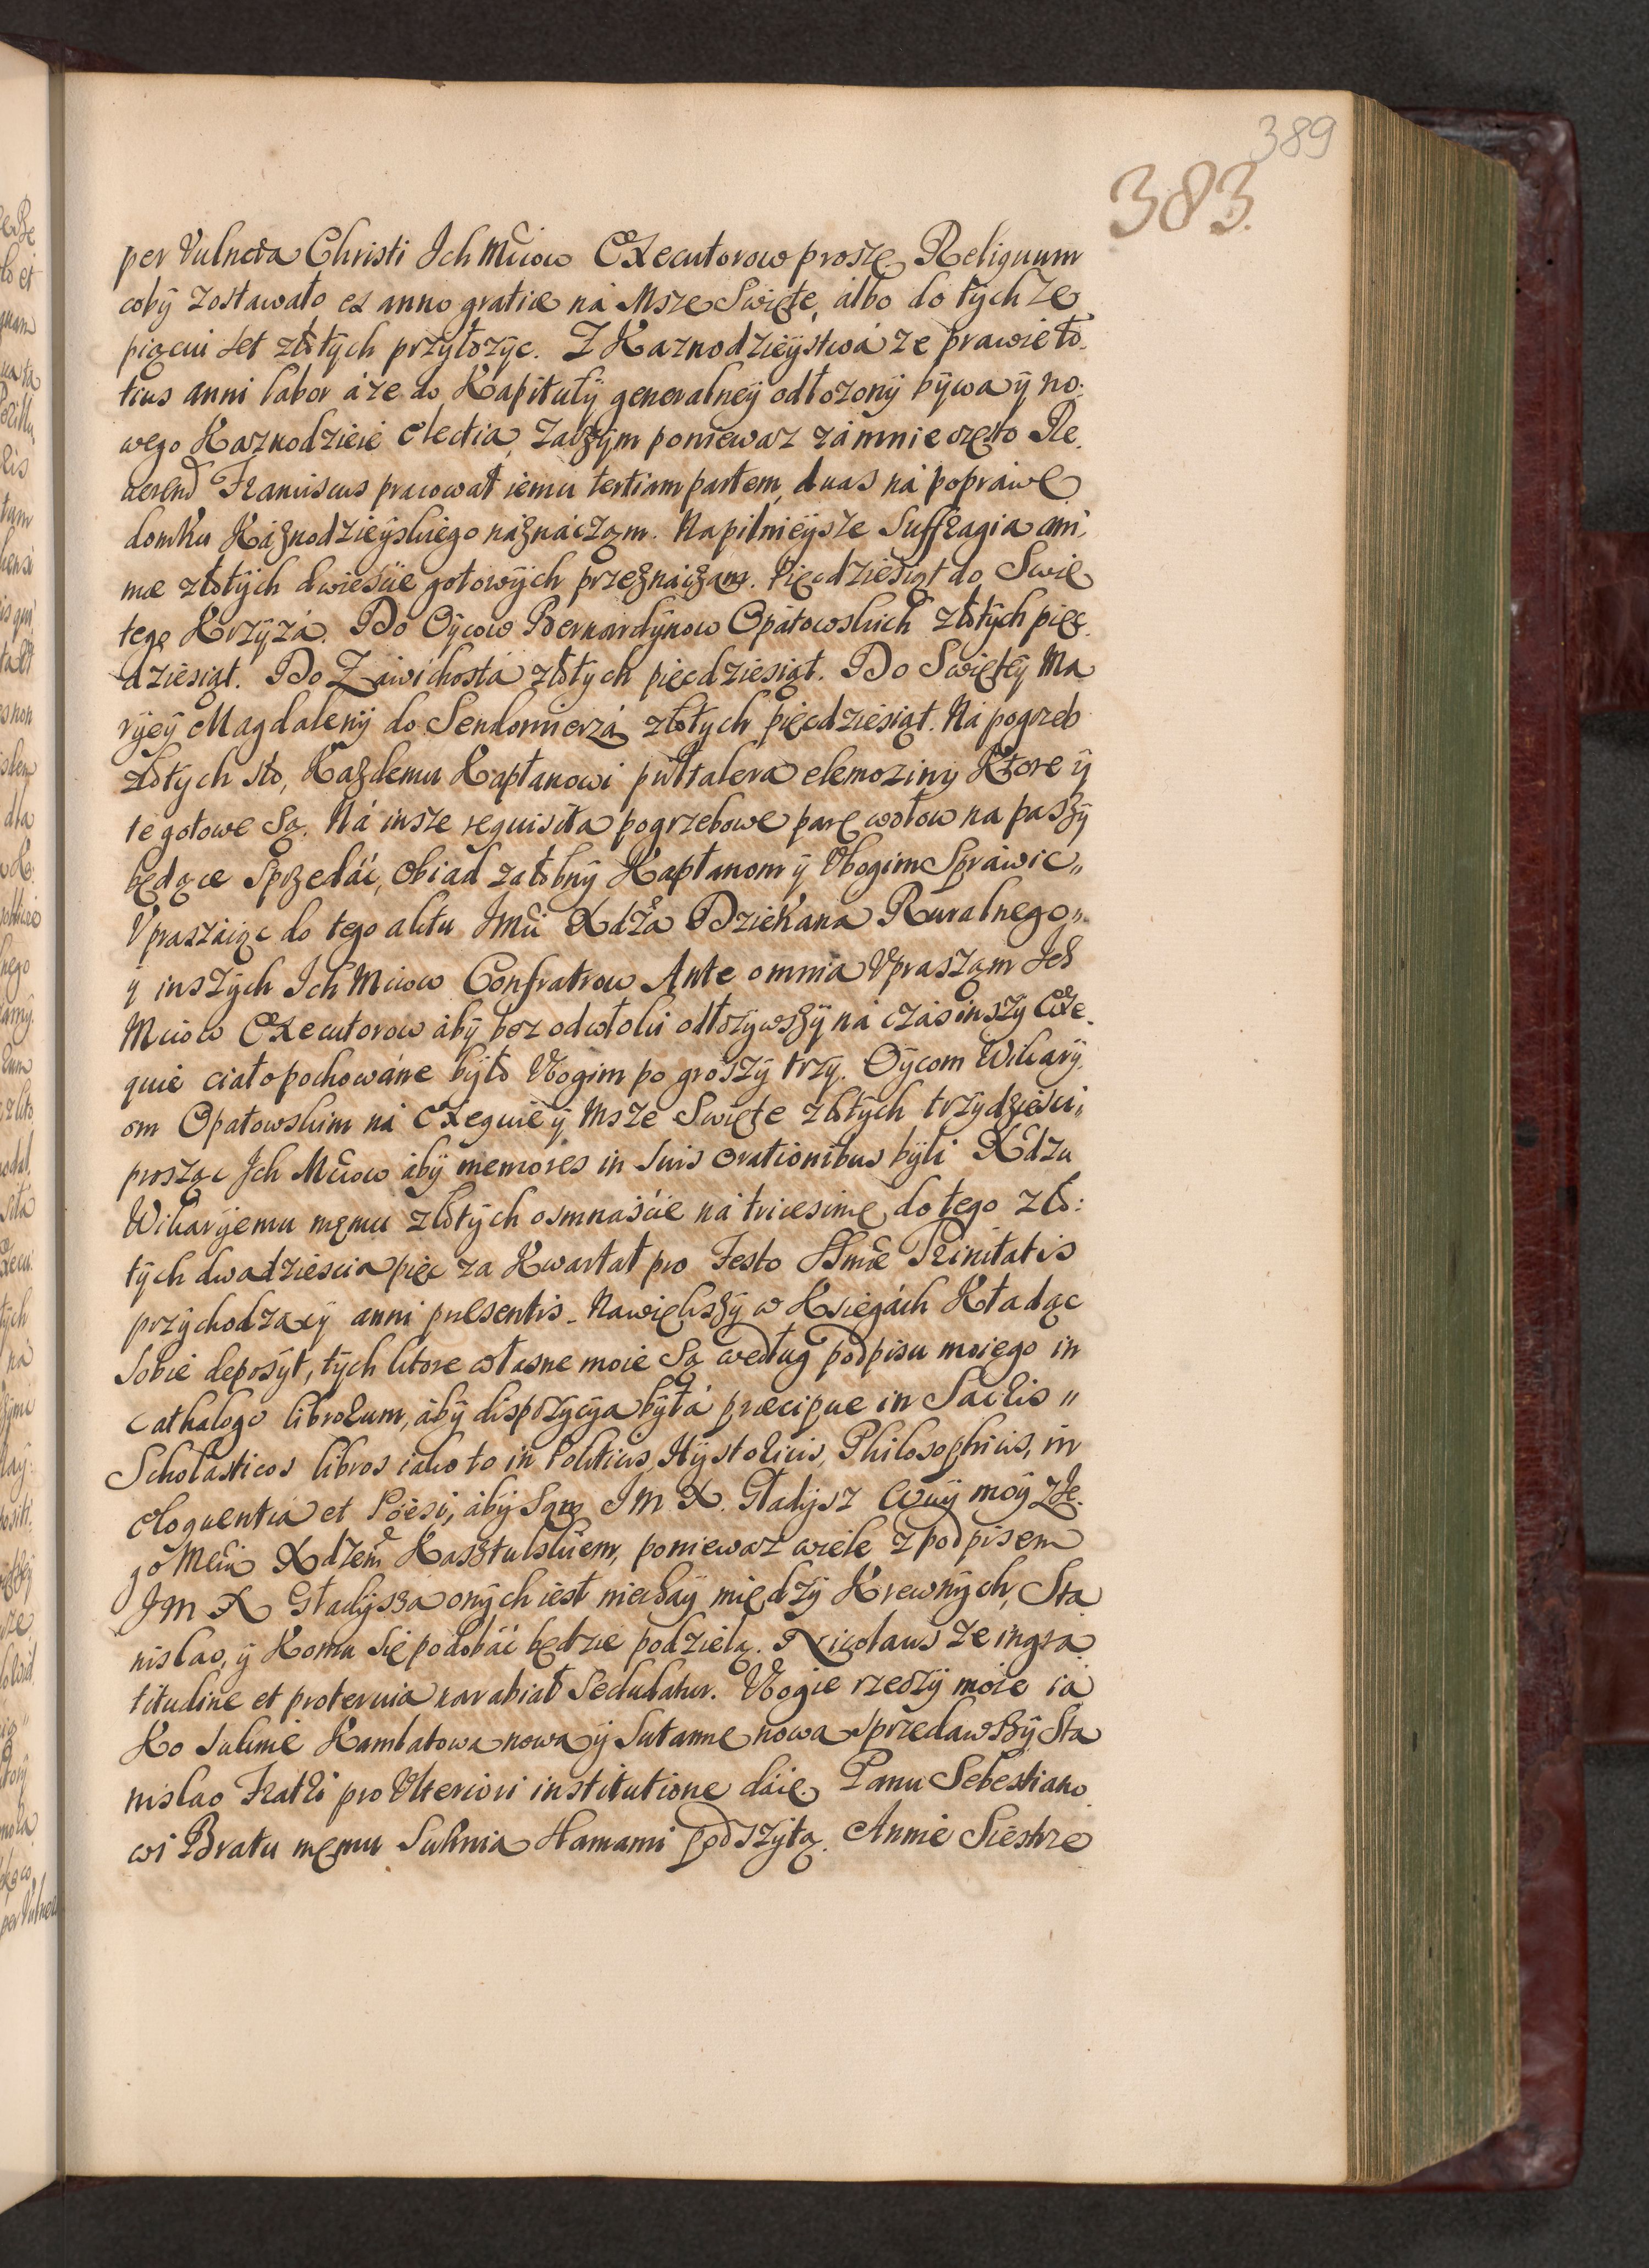 389
383.
per Vulnera Christi Ich Mciow Exekutorow proszę Reliquum
coby zostawało ex anno gratiæ ná Msze Swięte, álbo do tych że
piąciu set złotych przyłożyc. Z Kaznodzieÿstwá że prawie to„
tius anni labor áże do Kapituły generalneÿ odłożony bÿwa ÿ no„
wego Kaznodzieie electia, zaczÿm poniewaz zá mnie często Re„
uerend Franciscus pracował iemu tertiam partem, duas ná popráwę
domku Káznodzieÿskiego náznáczam. Napilnieÿsze Suffragia ani„
mæ złotÿch dwieście gotowÿch przeznáczam. Pięcdziesiąt do Swię„
tego Krzÿża. Do Oÿcow Bernardÿnow Opátowskich złotÿch pięc„
dziesiąt. Do Zawichosta złotÿch pięcdziesiąt. Do Swiętÿ Ma
rÿeÿ Magdalenÿ do Sendomierzá złotÿch pięcdziesiąt. Ná pogrzeb
złotÿch sto, Każdemu Kapłanowi pułtalera elemozinÿ Ktore ÿ
te gotowe są. Ná insze requisita pogrzebowe parę wołow na paszÿ
będące Sprzedáć, obiad załobnÿ Kapłanom ÿ Vbogim Spráwic„
Vpraszáiąc do tego aktu Jmci Xdza Dziekana Ruralnego„
ÿ inszÿch Ich Mciow Confratrow Ante omnia Vpraszam Ich
Mciow Exekutorow ábÿ bez odwłoki odłożÿwszÿ ná czas inszÿ Exe„
quie ciało pochowáne bÿło Vbogim po groszÿ trzÿ. Oÿcom Wikarÿ„
om Opatowskim ná Exequie ÿ Msze Swięte złotÿch trzÿdzieści„
prosząc Ich Mciow ábÿ memores in suis orationibus bÿli Xdzu
Wikarÿemu memu złotÿch osmnaście ná tricesimę do tego zło:
tÿch dwadziescia pięc za Kwartał pro Festo SSmæ Trinitatis
przÿchodzącÿ anni præsentis. Nawiększÿ w Ksiegách Kładąc
sobie deposÿt, tÿch ktore własne moie Są według podpisu moiego in
Cathalogo librorum, ábÿ dispozÿcÿa bÿłá præcipue in Sacris„
Scholasticos libros iako to in Politicis, Hÿstoricis, Philosophicis, in
Eloquentia et Poësi, ábÿ Sam JM X. Gładÿsz Wuÿ moÿ z Je„
go Mcią Xdzem Kasztulskiem, poniewaz wiele z podpisem
JM X Gładÿsza onÿch iest niechaÿ międzÿ Krewnÿch, Sta
nislao, ÿ Komu się podobáć będzie podzielą. Nicolaus że ingra„
titudine et proteruia narabiał Secludatur. Vbogie rzeczÿ moie iá
Ko suknie Kamlatowa nowa ÿ Sutannę nowa sprzedawszÿ Sta
nislao Fratri pro Vlteriori institutione dáię. Panu Sebestiano„
wi Bratu memu Suknia Hamami podszÿtą. Annie Siestrze